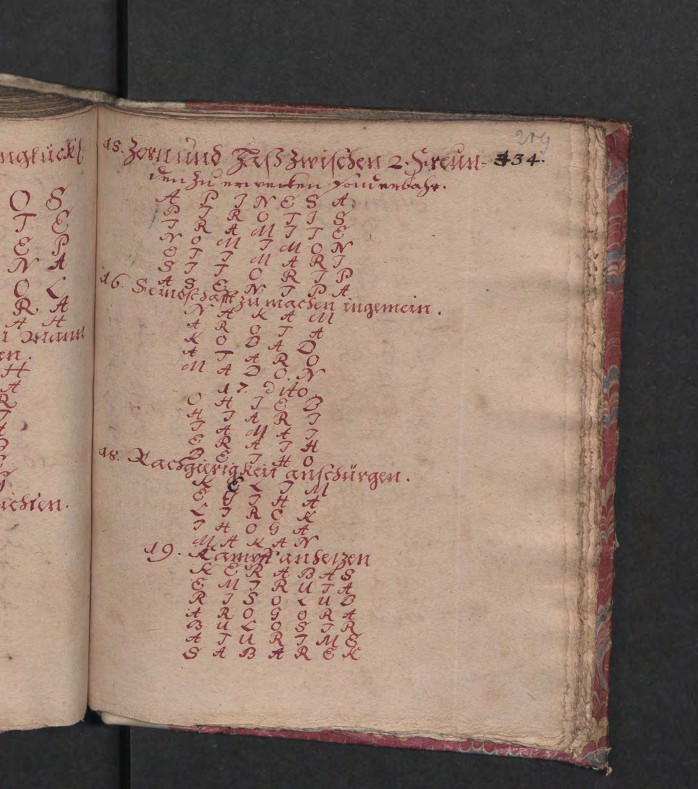 nglückt
O S
T E
E P
N A
O L
R A
A H
en.
H
A
R
ichten.
219
134.
15. Zorn und Haß zwischen 2. Freun-
den zu erwecken sonderbahr.
A P I N E S A
P I R O T I S
I R A M I T E
N O M I M O N
E T I M A R I
S I T O R I P
A S E N I P A
16. Feindschafft zu machen ingemein.
N A K A M
A R O T A
K O D A D
A T A R O
M A D O N
17. dito
O H I E D
H I A R I
I A M A I
E R A I H
D E I H O
18. Rachgierigkeit anschürgen.
K E L I M
E E I H A
L I R E K
I H O G A
M A K A N
19. Kampff anheizen
K E R A B A S
E M I R U T A
R I S O L U B
A R O G O R A
B U L O S I R
A T U R I M E
S A B A R E K